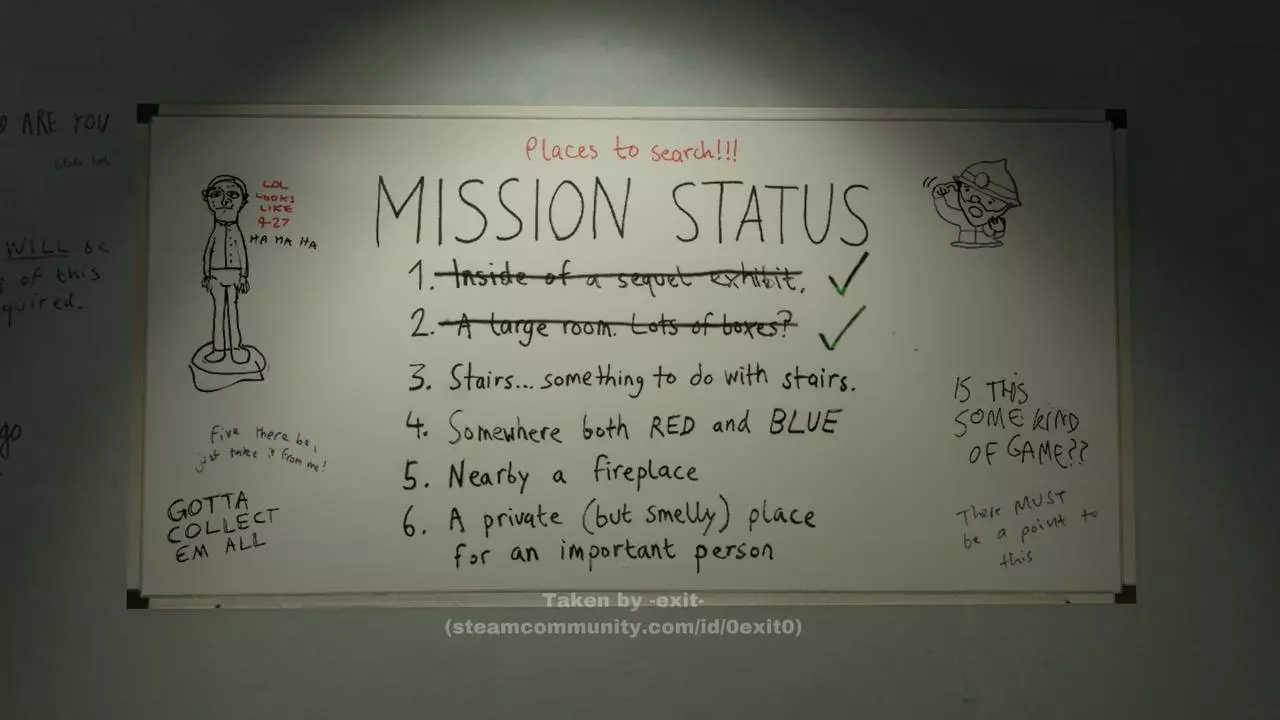 ARE YOU
WILL be
of this
quired.
go
Places to search!!!
MISSION STATUS
1. Inside of a sequel exhibit.
2. A large room. Lots of boxes?
3. Stairs... something to do with stairs.
4. Somewhere both RED and BLUE
5. Nearby a fireplace
6. A private (but smelly) place
for an important person
LOL
LOOKS
LIKE
427
HA HA HA
Five there be,
just take it from me!
GOTTA
COLLECT
EM ALL
IS THIS
SOME KIND
OF GAME??
There MUST
be a point to
this
Taken by -exit-
(steamcommunity.com/id/0exit0)